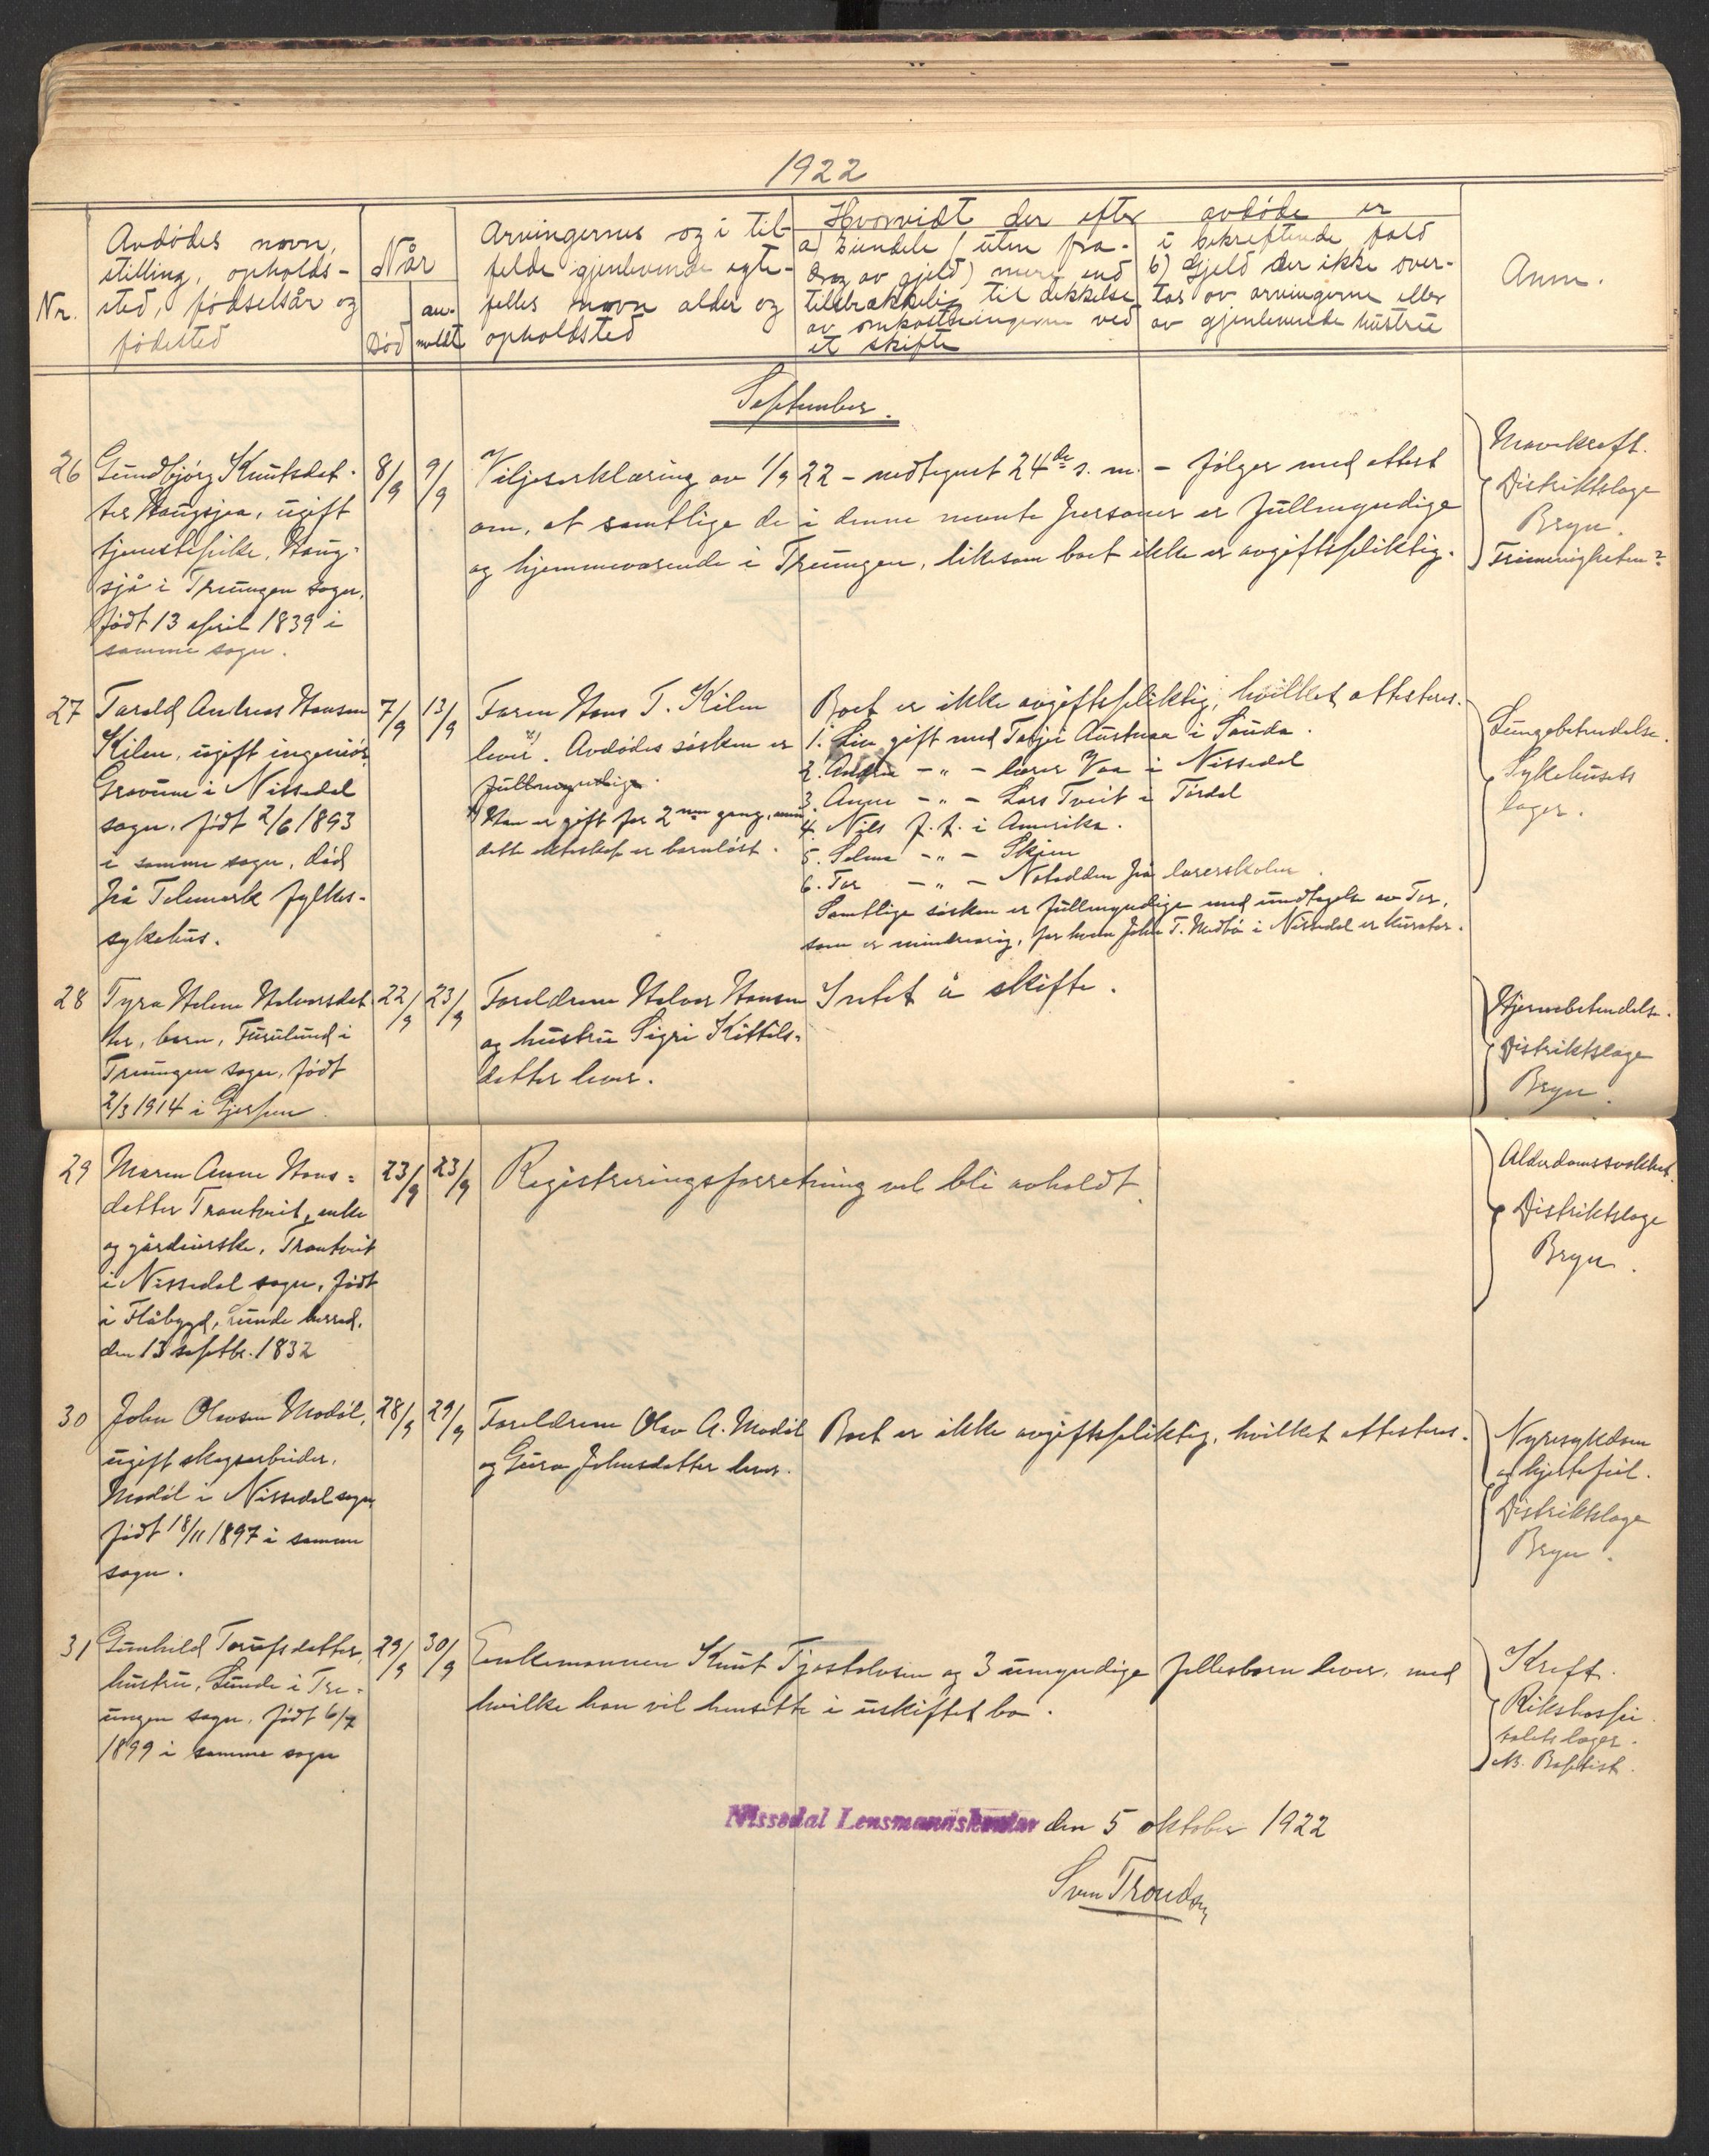 1922
Nr.
Avdødes navn,
stilling, opholds-
sted, fødselsår og
fødested
Når
Død
an-
meldt
Arvingernes og i til-
felde gjenlevende egte-
felles navn alder og
opholdsted
Hvorvidt der efter avdøde er
a) Eiendele (uten fra-
drag av gjeld) mere end
tilstrækkelig til dekkelse
av omkostningerne ved
et skifte
i bekreftende fald
b) Gjeld der ikke over-
tas av arvingerne eller
av gjenlevende hustru
Anm.
September.
26
Gundbjørg Knutsdat-
ter Haugsjaa, ugift
tjenestepike, Haug-
sjå i Treungen sogn,
født 13 april 1839 i
samme sogn.
8/9
9/9
Viljeserklæring av 1/9 22 – vedtegnet 24de s. m. – følger med attest
om, at samtlige de i denne nevnte personer er fullmyndige
og hjemmeværende i Treungen, likesom boet ikke er avgiftspliktig.
Mavekreft.
Distriktslæge
Bryn.
Frimenigheten?
27
Tarald Andreas Hansen
Kilen, ugift ingeniør,
Gravune i Nissedal
sogn, født 2/6 1893
i samme sogn, død
på Telemark fylkes-
sykehus.
7/9
13/9
Faren Hans T. Kilen
lever x). Avdødes søsken er
fullmyndige.
x) Han er gift for 2nen gang, men
dette ekteskap er barnløst.
Boet er ikke avgiftspliktig, hvilket attesteres.
1. Liv gift med Tarje Austnaa i Sauda.
2. Andrea -"- lærer Vaa i Nissedal
3. Anne -"- Lars Tveit i Tørdal
4. Nils p. t. i Amerika.
5. Selma -"- Skien
6. Tor -"- Notodden på lærerskolen.
Samtlige søsken er fullmyndige med undtagelse av Tor,
som er mindreårig, for hvem John T. Medbø i Nissedal er kurator.
Lungebetendelse.
Sykehusets
læger.
28
Tyra Helene Halvorsdat-
ter, barn, Furulund i
Treungen sogn, født
2/3 1914 i Gjerpen.
22/9
23/9
Foreldrene Halvor Hansen
og hustru Sigri Kittils-
datter lever.
Intet å skifte.
Hjernebetendelse.
Distriktslæge
Bryn.
29
Maren Anne Hans-
datter Trontveit, enke
og gårdeierske, Trontveit
i Nissedal sogn, født
i Flåbygd, Lunde herred,
den 13 septbr. 1832
23/9
23/9
Registreringsforretning vil bli avholdt.
Alderdomssvakhet.
Distriktslæge
Bryn.
30
John Olavsen Modøl,
ugift skogsarbeider,
Modøl i Nissedal sogn,
født 18/11 1897 i samme
sogn.
28/9
29/9
Foreldrene Olav A. Modøl
og Guro Johnsdatter lever.
Boet er ikke avgiftspliktig, hvilket attesteres.
Nyresykdom
og hjertefeil.
Distriktslæge
Bryn.
31
Gunhild Torufsdatter,
hustru, Lunde i Tre-
ungen sogn, født 6/7
1899 i samme sogn
29/9
30/9
Enkemannen Knut Tjostolvsen og 3 umyndige fellesbarn lever, med
hvilke han vil hensitte i uskiftet bo.
Kreft.
Rikshospi-
talets læger.
NB. Baptist.
Nissedal Lensmannskontor den 5 oktober 1922
Sven Trondsen